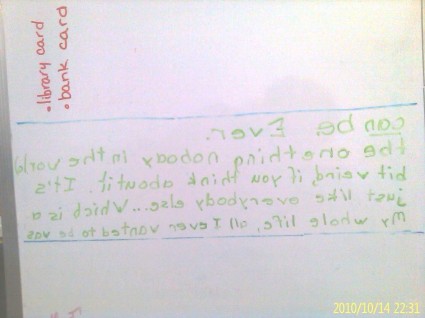 • library card
• bank card
My whole life, all I ever wanted to be was
just like everybody else... Which is a
bit weird, if you think about it. It's
the one thing nobody in the world
can be. Ever.
2010/10/14 22:31